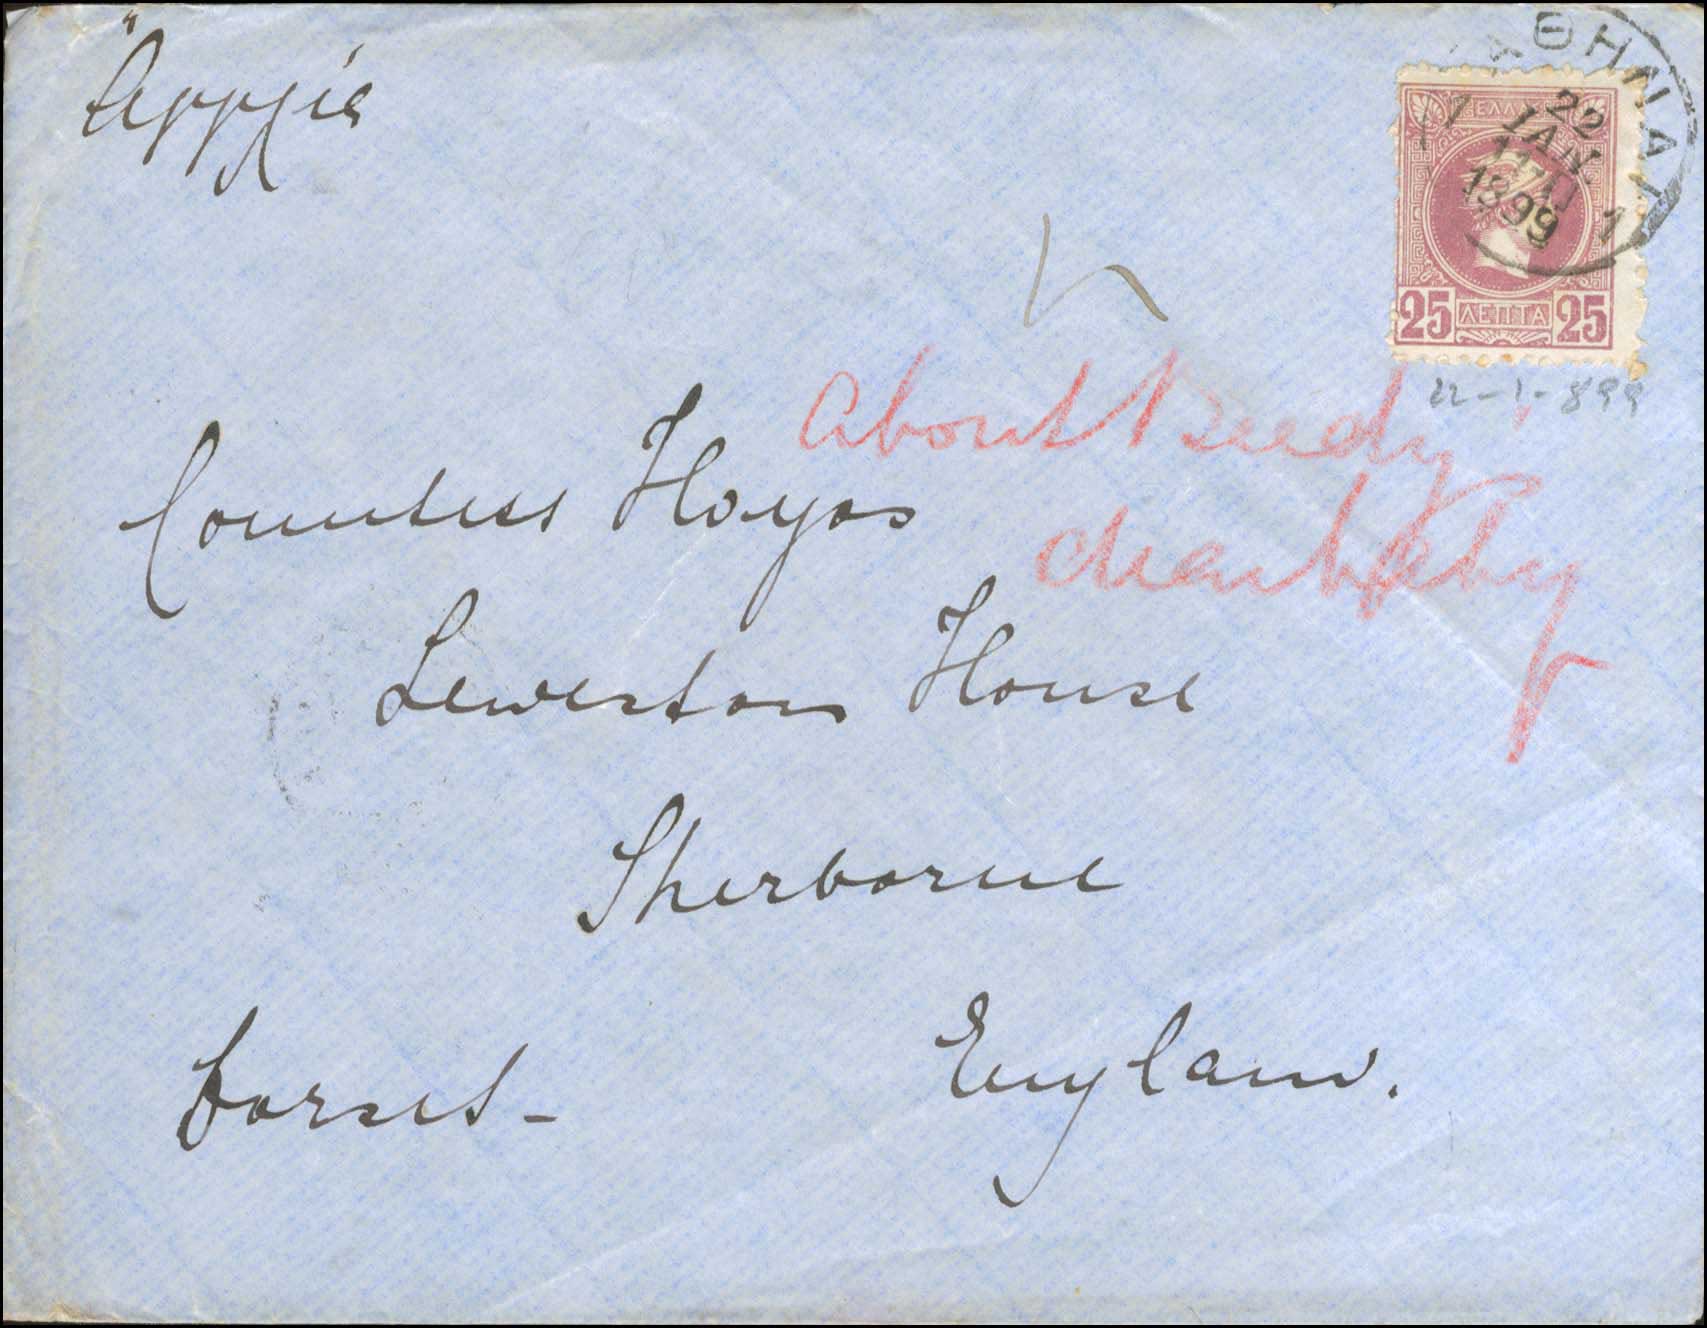 Ἀγγλία
ΑΘΗΝΑΙ
ΕΛΛΑΣ
22
ΙΑΝ.
1899
1
25 ΛΕΠΤΑ 25
22-1-899
About
Countess Hoyos
Leweston House
Sherborne
Dorset -
England.